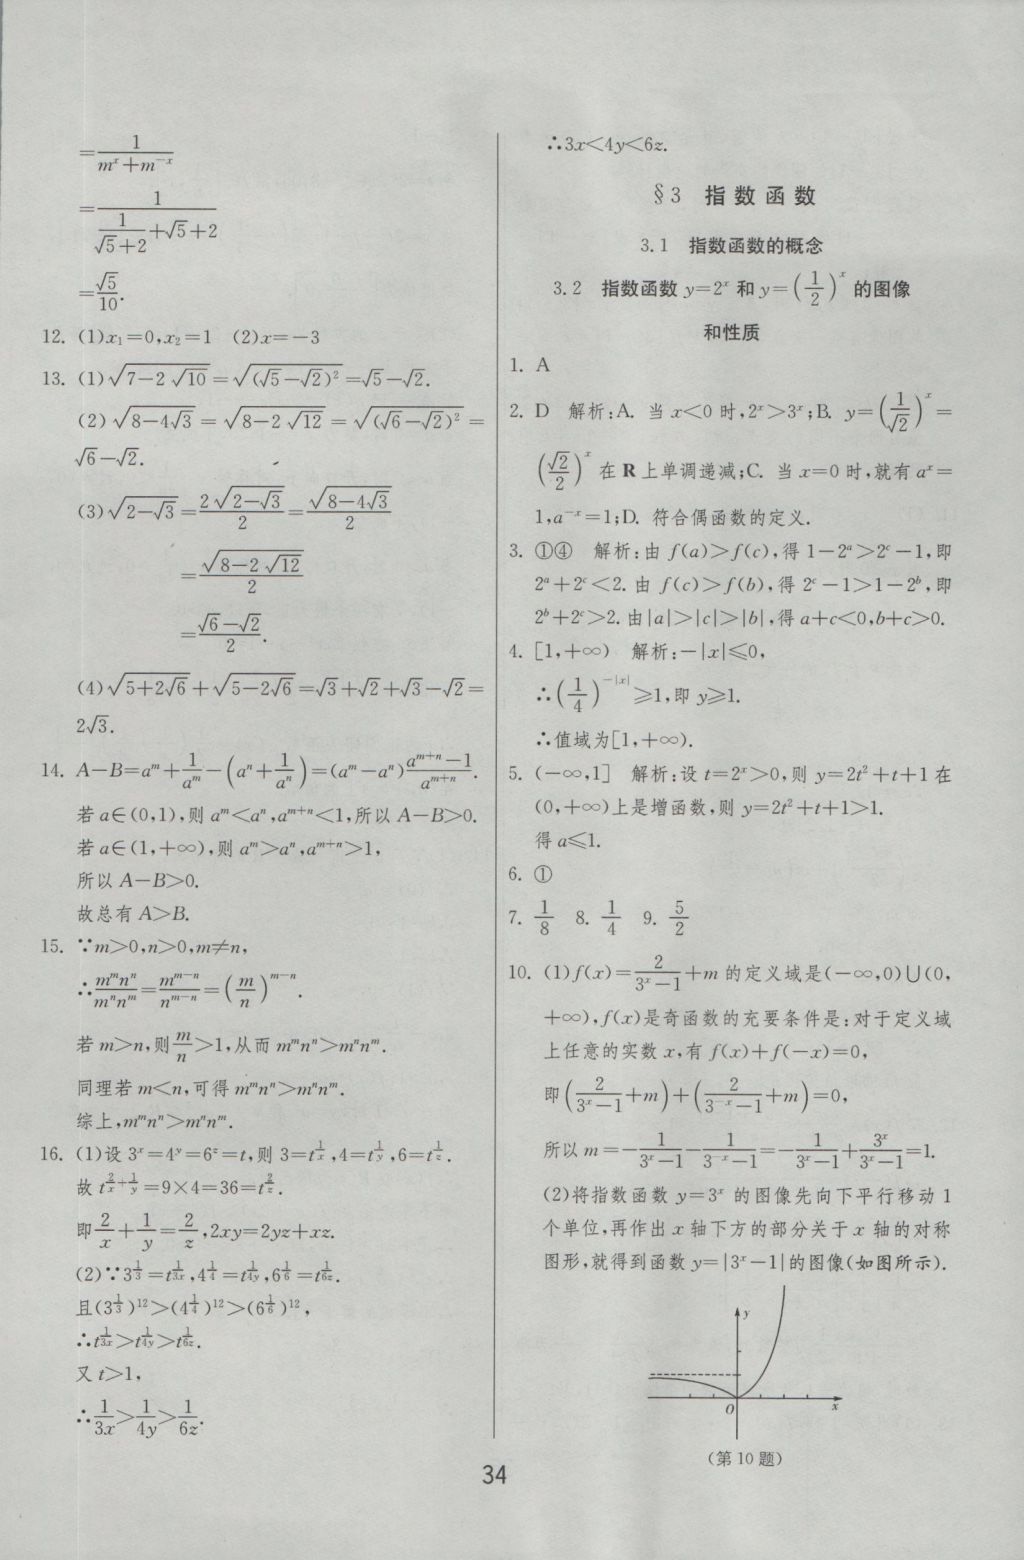 =1/(mˣ+m⁻ˣ)
=1/(1/(√5+2)+√5+2)
=√5/10.
12. (1)x₁=0,x₂=1 (2)x=-3
13. (1)√(7-2√10)=√((√5-√2)²)=√5-√2.
(2)√(8-4√3)=√(8-2√12)=√((√6-√2)²)=
√6-√2.
(3)√(2-√3)=2√(2-√3)/2=√(8-4√3)/2
=√(8-2√12)/2
=(√6-√2)/2.
(4)√(5+2√6)+√(5-2√6)=√3+√2+√3-√2=
2√3.
14. A-B=aᵐ+1/aᵐ-(aⁿ+1/aⁿ)=(aᵐ-aⁿ)(aᵐ⁺ⁿ-1)/aᵐ⁺ⁿ.
若a∈(0,1),则aᵐ<aⁿ,aᵐ⁺ⁿ<1,所以A-B>0.
若a∈(1,+∞),则aᵐ>aⁿ,aᵐ⁺ⁿ>1,
所以A-B>0.
故总有A>B.
15. ∵m>0,n>0,m≠n,
∴mᵐnⁿ/(mⁿnᵐ)=mᵐ⁻ⁿ/nᵐ⁻ⁿ=(m/n)ᵐ⁻ⁿ.
若m>n,则m/n>1,从而mᵐnⁿ>mⁿnᵐ.
同理若m<n,可得mᵐnⁿ>mⁿnᵐ.
综上,mᵐnⁿ>mⁿnᵐ.
16. (1)设3ˣ=4ʸ=6ᶻ=t,则3=t^(1/x),4=t^(1/y),6=t^(1/z).
故t^(2/x+1/y)=9×4=36=t^(2/z).
即2/x+1/y=2/z,2xy=2yz+xz.
(2)∵3^(1/3)=t^(1/3x),4^(1/4)=t^(1/4y),6^(1/6)=t^(1/6z).
且(3^(1/3))¹²>(4^(1/4))¹²>(6^(1/6))¹²,
∴t^(1/3x)>t^(1/4y)>t^(1/6z).
又t>1,
∴1/3x>1/4y>1/6z.
∴3x<4y<6z.
§3 指数函数
3.1 指数函数的概念
3.2 指数函数y=2ˣ和y=(1/2)ˣ的图像
和性质
1. A
2. D 解析:A. 当x<0时,2ˣ>3ˣ;B. y=(1/√2)ˣ=
(√2/2)ˣ在R上单调递减;C. 当x=0时,就有aˣ=
1,a⁻ˣ=1;D. 符合偶函数的定义.
3. ①④ 解析:由f(a)>f(c),得1-2ᵃ>2ᶜ-1,即
2ᵃ+2ᶜ<2.由f(c)>f(b),得2ᶜ-1>1-2ᵇ,即
2ᵇ+2ᶜ>2.由|a|>|c|>|b|,得a+c<0,b+c>0.
4. [1,+∞) 解析:-|x|≤0,
∴(1/4)^(-|x|)≥1,即y≥1.
∴值域为[1,+∞).
5. (-∞,1] 解析:设t=2ˣ>0,则y=2t²+t+1在
(0,+∞)上是增函数,则y=2t²+t+1>1.
得a≤1.
6. ①
7. 1/8 8. 1/4 9. 5/2
10. (1)f(x)=2/(3ˣ-1)+m的定义域是(-∞,0)∪(0,
+∞),f(x)是奇函数的充要条件是:对于定义域
上任意的实数x,有f(x)+f(-x)=0,
即(2/(3ˣ-1)+m)+(2/(3⁻ˣ-1)+m)=0,
所以m=-1/(3ˣ-1)-1/(3⁻ˣ-1)=-1/(3ˣ-1)+3ˣ/(3ˣ-1)=1.
(2)将指数函数y=3ˣ的图像先向下平行移动1
个单位,再作出x轴下方的部分关于x轴的对称
图形,就得到函数y=|3ˣ-1|的图像(如图所示).
y
O
x
(第10题)
34